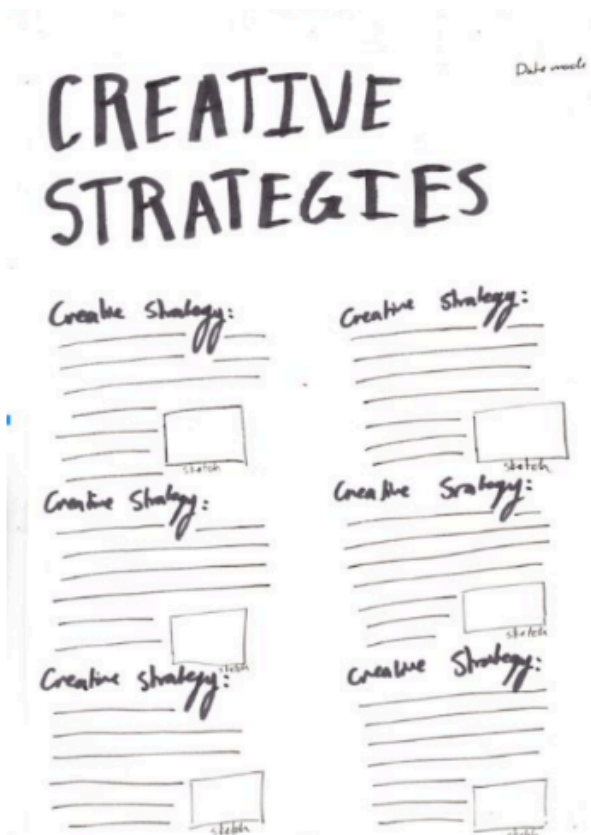 Date made
CREATIVE
STRATEGIES
Creative Strategy:
sketch
Creative Strategy:
sketch
Creative Strategy:
sketch
Creative Strategy:
sketch
Creative Strategy:
sketch
Creative Strategy:
sketch